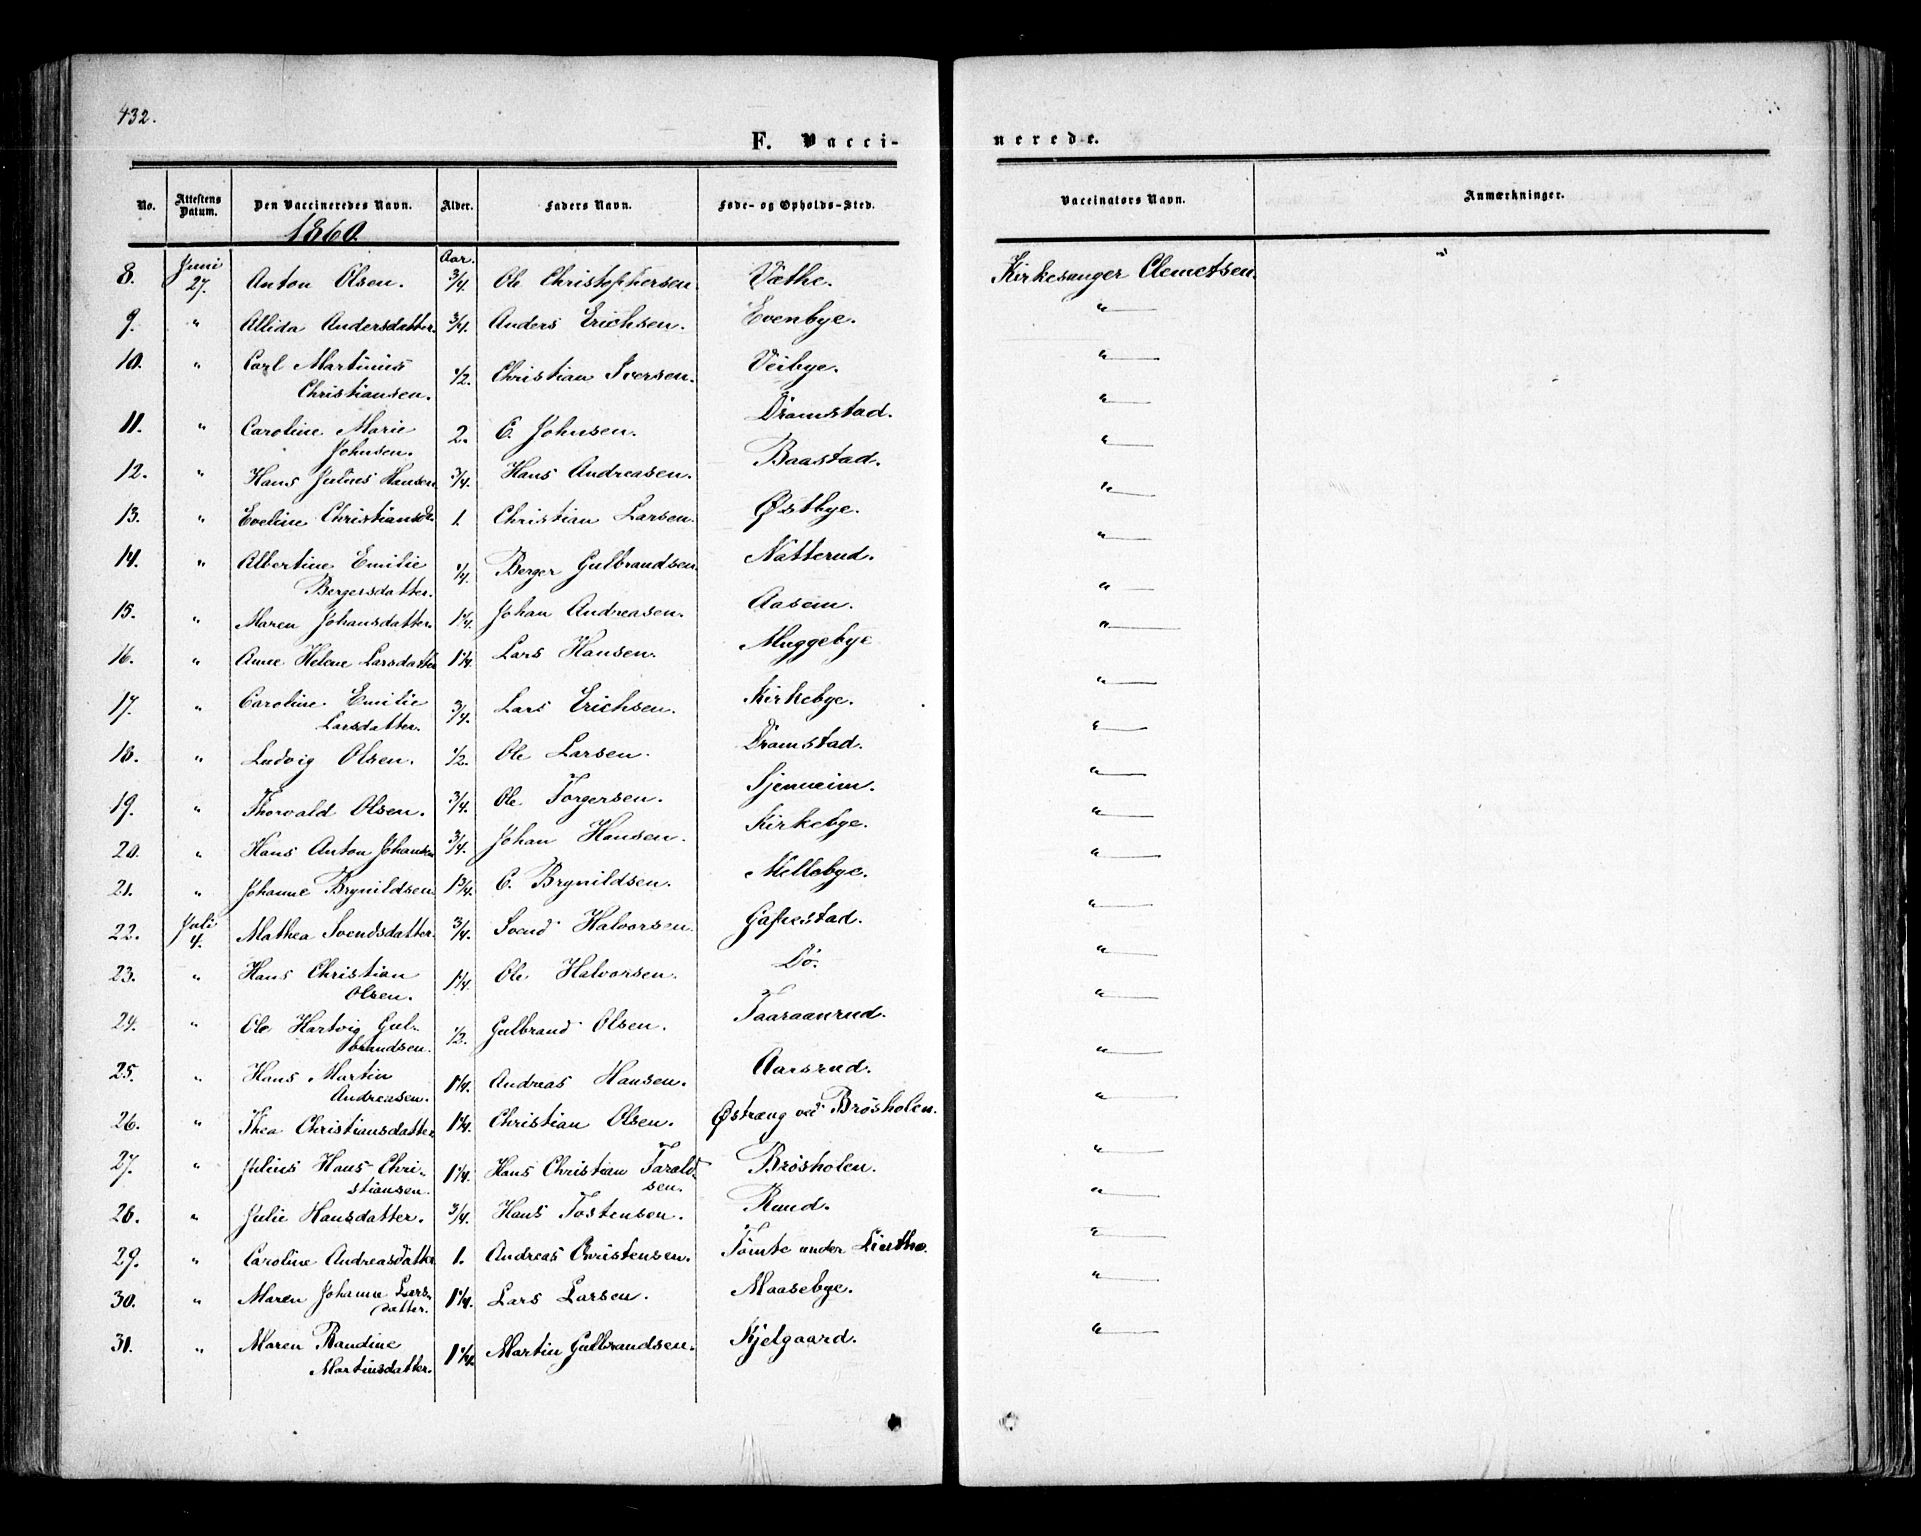 432.
F. Vacci-
nerede.
No. Attestens Datum. Den Vaccineredes Navn. Alder. Faders Navn. Føde- og Opholds-Sted. Vaccinators Navn. Anmærkninger.
1860.
Aar.
8. Juni 27. Anton Olsen. 3/4. Ole Christophersen. Væthe. Kirkesanger Clemetsen. "
9. " Allida Andersdatter. 3/4. Anders Erichsen. Evenbye. "
10. " Carl Martinius Christiansen. 1/2. Christian Iversen. Veibye. "
11. " Caroline Marie Johnsen. 2. E. Johnsen. Dramstad. "
12. " Hans Julius Hansen 3/4. Hans Andreasen. Baastad. "
13. " Eveline Christiansd. 1. Christian Larsen. Østbye. "
14. " Albertine Emilie Bergersdatter. 1/4. Berger Gulbrandsen. Natterud. "
15. " Maren Johansdatter. 1 1/4. Johan Andreasen. Aasem. "
16. " Anne Helene Larsdatter 1 1/4. Lars Hansen. Muggebye "
17. " Caroline Emilie Larsdatter. 3/4. Lars Erichsen. Kirkebye. "
18. " Ludvig Olsen. 1/2. Ole Larsen. Dramstad. "
19. " Thorvald Olsen. 3/4. Ole Torgersen. Sjenneim. "
20. " Hans Anton Johansen 3/4. Johan Hansen. Kirkebye. "
21. " Johanne Brynildsen. 1 3/4. C. Brynildsen. Mellebye. "
22. Juli 4. Mathea Svendsdatter. 3/4. Svend Halvorsen. Gafnestad. "
23. " Hans Christian Olsen. 1 1/4. Ole Halvorsen. Do. "
24. " Ole Hartvig Gulbrandsen. 1/2. Gulbrand Olsen. Taaraanrud. "
25. " Hans Martin Andreasen. 1 1/4. Andreas Hansen. Aarsrud. "
26. " Thea Christiansdatter 1 1/4. Christian Olsen. Østræng ved Brösholen. "
27. " Julius Hans Chri-stiansen. 1 1/4. Hans Christian Tarald-sen. Brösholen. "
28. " Julie Hansdatter. 3/4. Hans Tostensen. Rund. "
29. " Caroline Andreasdatter 1. Andreas Christensen. Tömte under Linthe. "
30. " Maren Johanne Lars-datter. 1 1/4. Lars Larsen. Maasebye. "
31. " Maren Randine Martinsdatter. 1 1/4. Martin Gulbrandsen. Kjelgaard. "